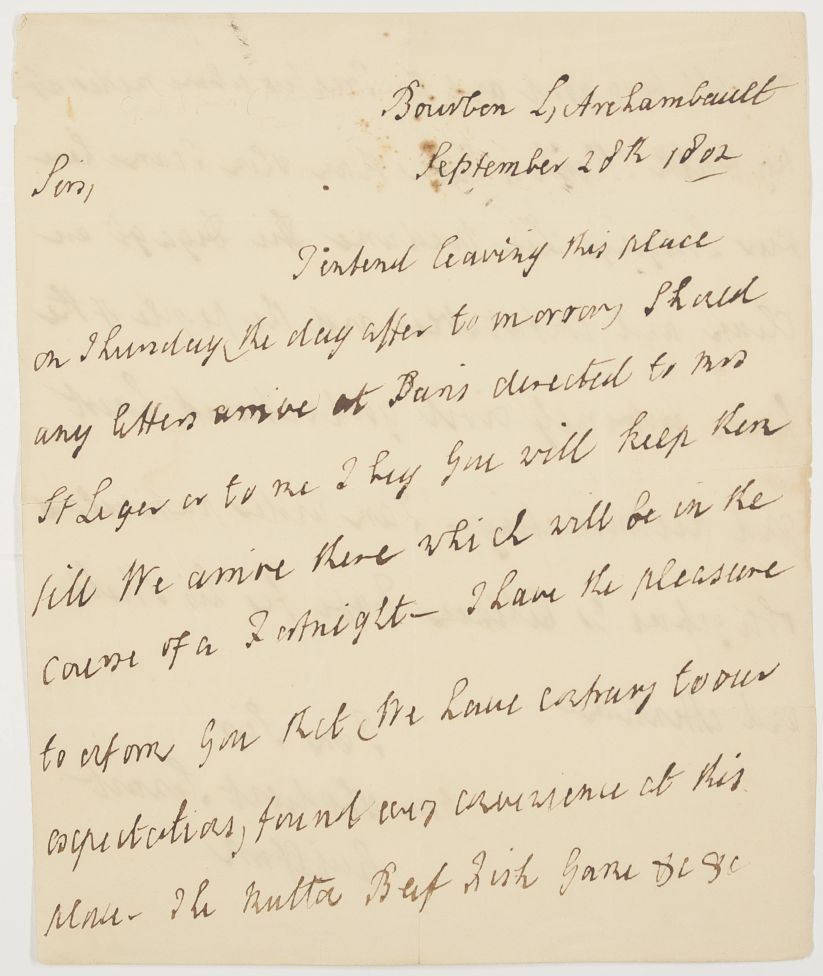 Bourbon L, Archambault
September 28th 1802
Sirs,
I intend leaving this place
on Thursday, the day after to morrow, Should
any letters arrive at Paris directed to Mrs
St Leger or to me I beg you will keep them
till We arrive there which will be in the
course of a Fortnight – I have the pleasure
to inform you that We have contrary to our
expectations, found every convenience at this
place – The Mutton Beef Fish Game &c &c